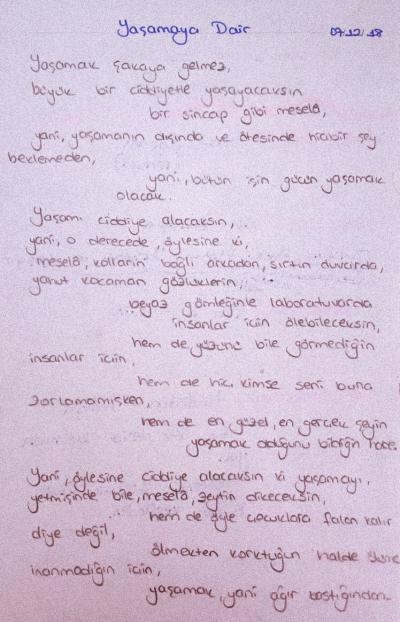 Yaşamaya Dair 07.12/18
Yaşamak şakaya gelmez,
büyük bir ciddiyetle yaşayacaksın
bir sincap gibi meselâ,
yani, yaşamanın dışında ve ötesinde hiçbir şey
beklemeden,
yani, bütün işin gücün yaşamak
olacak.
Yaşamı ciddiye alacaksın,
yani, o derecede, öylesine ki,
meselâ, kolların bağlı arkadan, sırtın duvarda,
yahut kocaman gözlüklerin,
beyaz gömleğinle laboratuvarda
insanlar için ölebileceksin,
hem de yüzünü bile görmediğin
insanlar için,
hem de hiç kimse seni buna
zorlamamışken,
hem de en güzel, en gerçek şeyin
yaşamak olduğunu bildiğin halde.
Yani, öylesine ciddiye alacaksın ki yaşamayı,
yetmişinde bile, meselâ, zeytin dikeceksin,
hem de öyle çocuklara falan kalır
diye değil,
ölmekten korktuğun halde ölüme
inanmadığın için,
yaşamak, yani ağır bastığından.